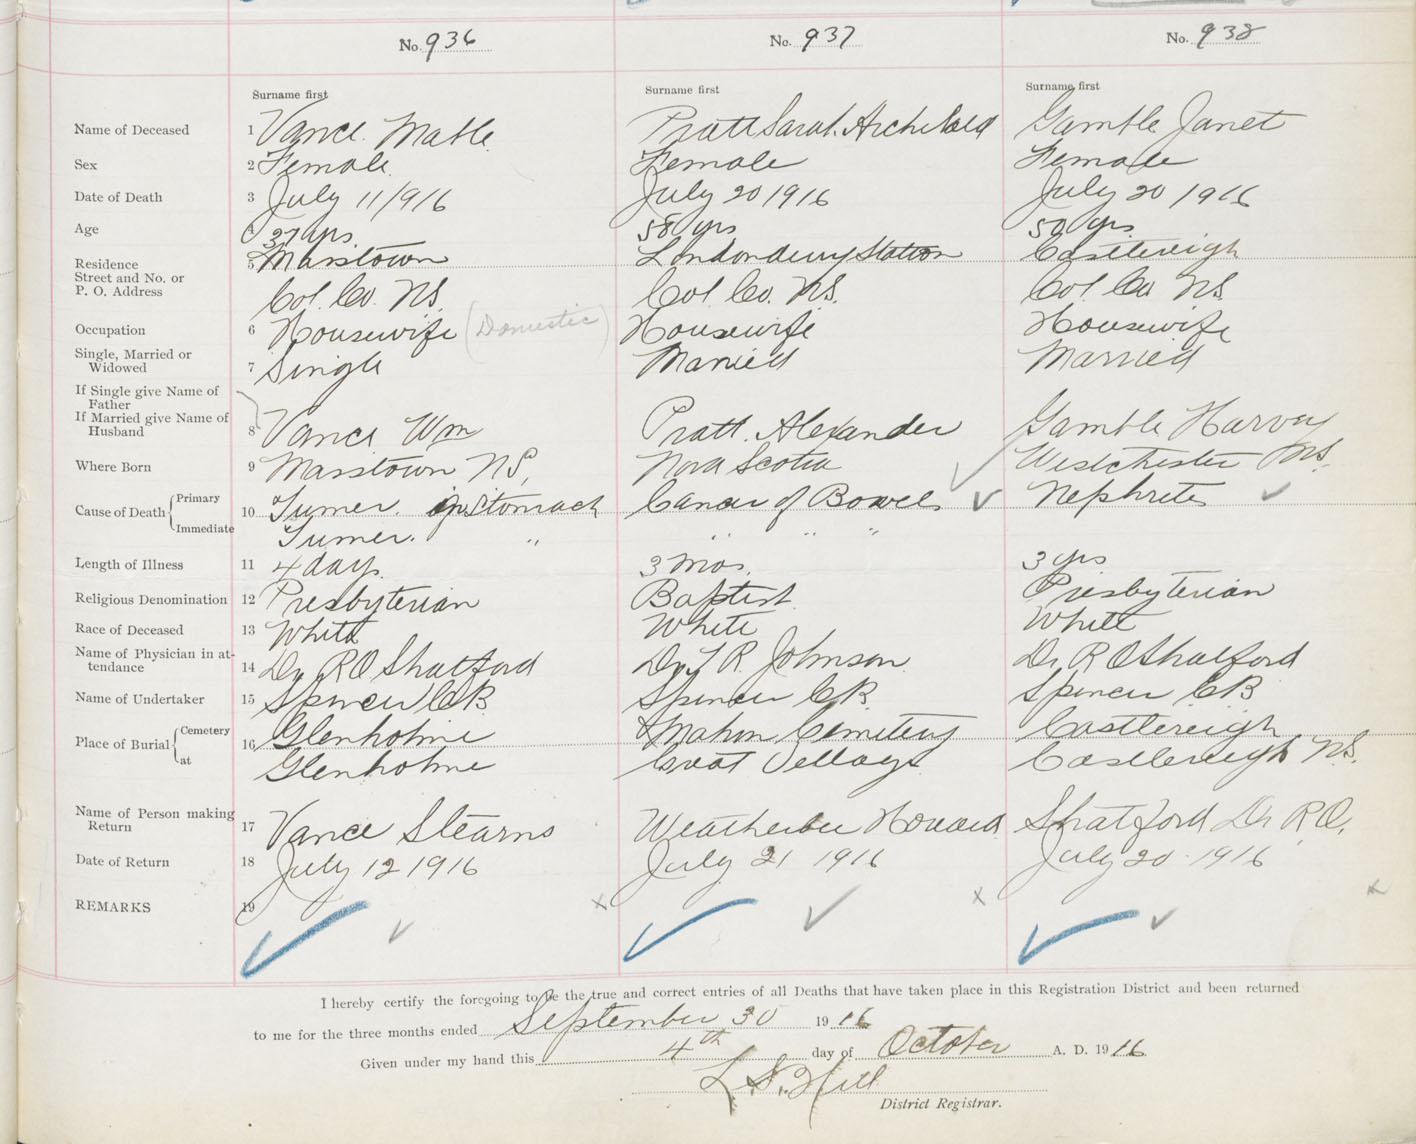 No. 936 No. 937 No. 938
Surname first Surname first Surname first
Name of Deceased 1 Vance Mable Pratt Sarah Archibald Gamble Janet
Sex 2 Female Female Female
Date of Death 3 July 11/916 July 20 1916 July 20 1916
Age 4 37 yrs. 58 yrs 50 yrs.
Residence 5 Masstown Londonderry Station Castlereigh
Street and No. or
P. O. Address Col. Co. N.S. Col. Co. N.S. Col. Co. N.S.
Occupation 6 Housewife (Domestic) Housewife Housewife
Single, Married or
Widowed 7 Single Married Married
If Single give Name of
Father
If Married give Name of
Husband 8 Vance Wm Pratt. Alexander Gamble Harvey
Where Born 9 Masstown N.S. Nova Scotia Westchester N.S.
Cause of Death Primary 10 Tumer. in Stomach Cancer of Bowels Nephrites
Immediate Tumer. " " " "
Length of Illness 11 4 days. 3 mos. 3 yrs
Religious Denomination 12 Presbyterian Baptist Presbyterian
Race of Deceased 13 White White White
Name of Physician in at-
tendance 14 Dr R O Shatford Dr T. R. Johnson Dr R O Shatford
Name of Undertaker 15 Spencer C B. Spencer C B. Spencer C B
Place of Burial Cemetery 16 Glenholme Mahon Cemetery Castlereigh
at Glenholme Great Village Castlereigh N.S.
Name of Person making
Return 17 Vance Stearns Weatherbee Howard Shatford Dr R O.
Date of Return 18 July 12 1916 July 21 1916 July 20 1916
REMARKS 19
I hereby certify the foregoing to be the true and correct entries of all Deaths that have taken place in this Registration District and been returned
to me for the three months ended September 30 1916
Given under my hand this 4th day of October A. D. 1916
L. S. Hill
District Registrar.